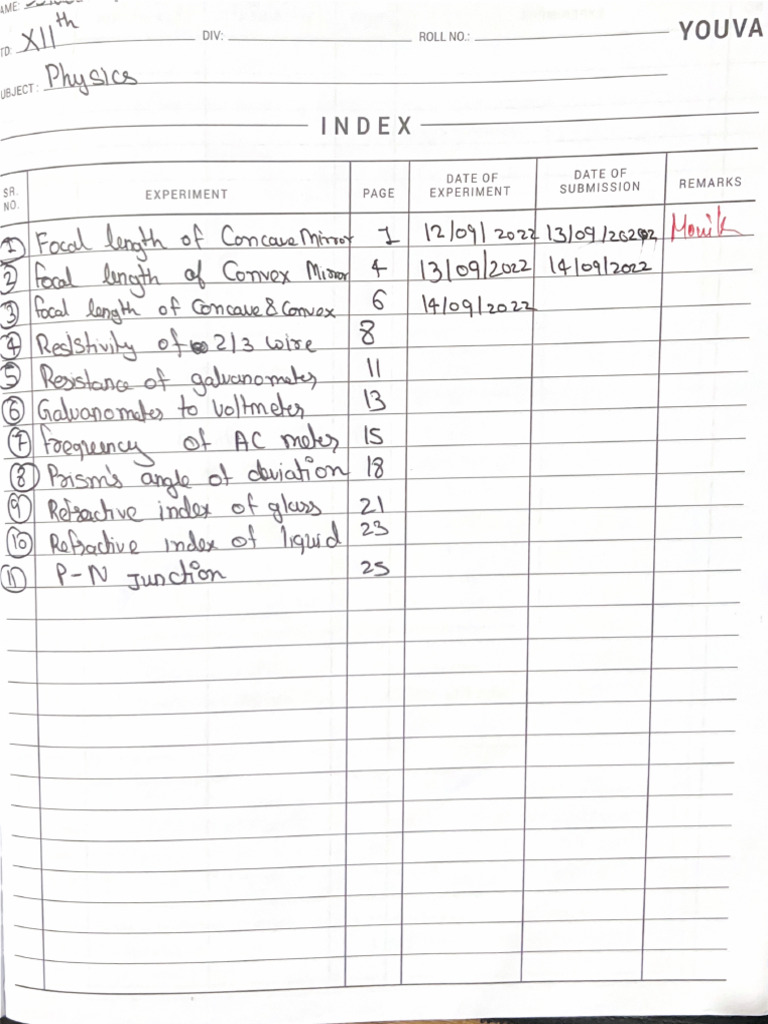 AME:
TD: XIIth DIV: ROLL NO.: YOUVA
UBJECT: Physics
INDEX
SR. NO. EXPERIMENT PAGE DATE OF EXPERIMENT DATE OF SUBMISSION REMARKS
1 Focal length of Concave Mirror 1 12/09/2022 13/09/2022 Monik
2 Focal length of Convex Mirror 4 13/09/2022 14/09/2022
3 Focal length of Concave & Convex 6 14/09/2022
4 Resistivity of 2/3 wire 8
5 Resistance of galvanometer 11
6 Galvanometer to Voltmeter 13
7 Frequency of AC meter 15
8 Prism's angle of deviation 18
9 Refractive index of glass 21
10 Refractive index of liquid 23
11 P-N Junction 25